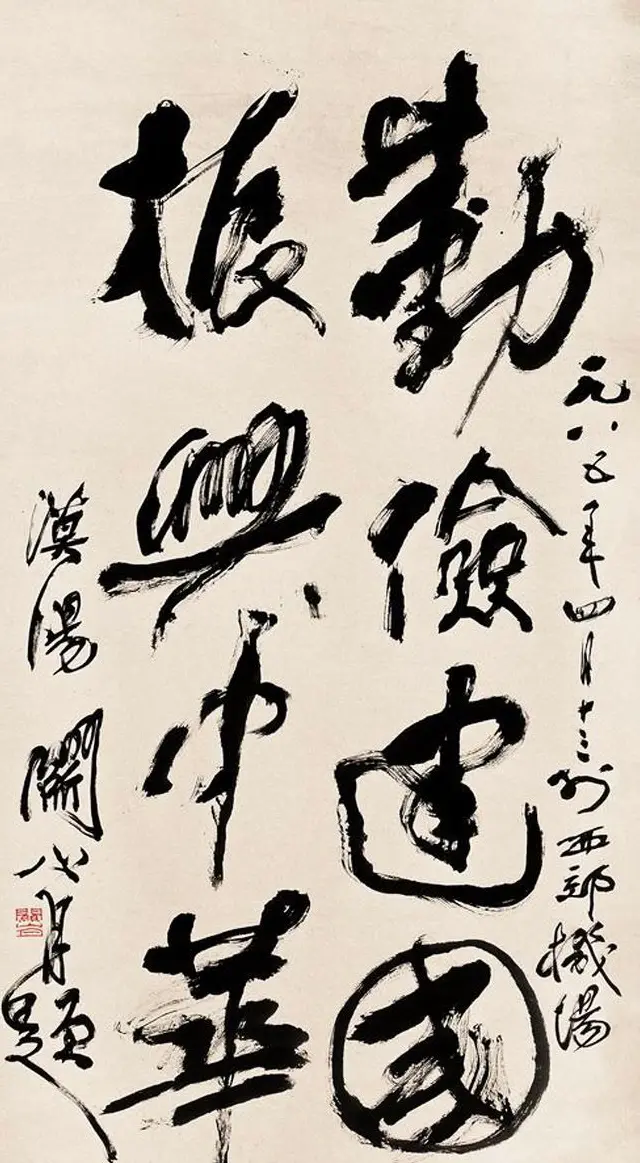 一九八五年四月十三西部機場
勤儉建國
振興中華
漠陽關山月題